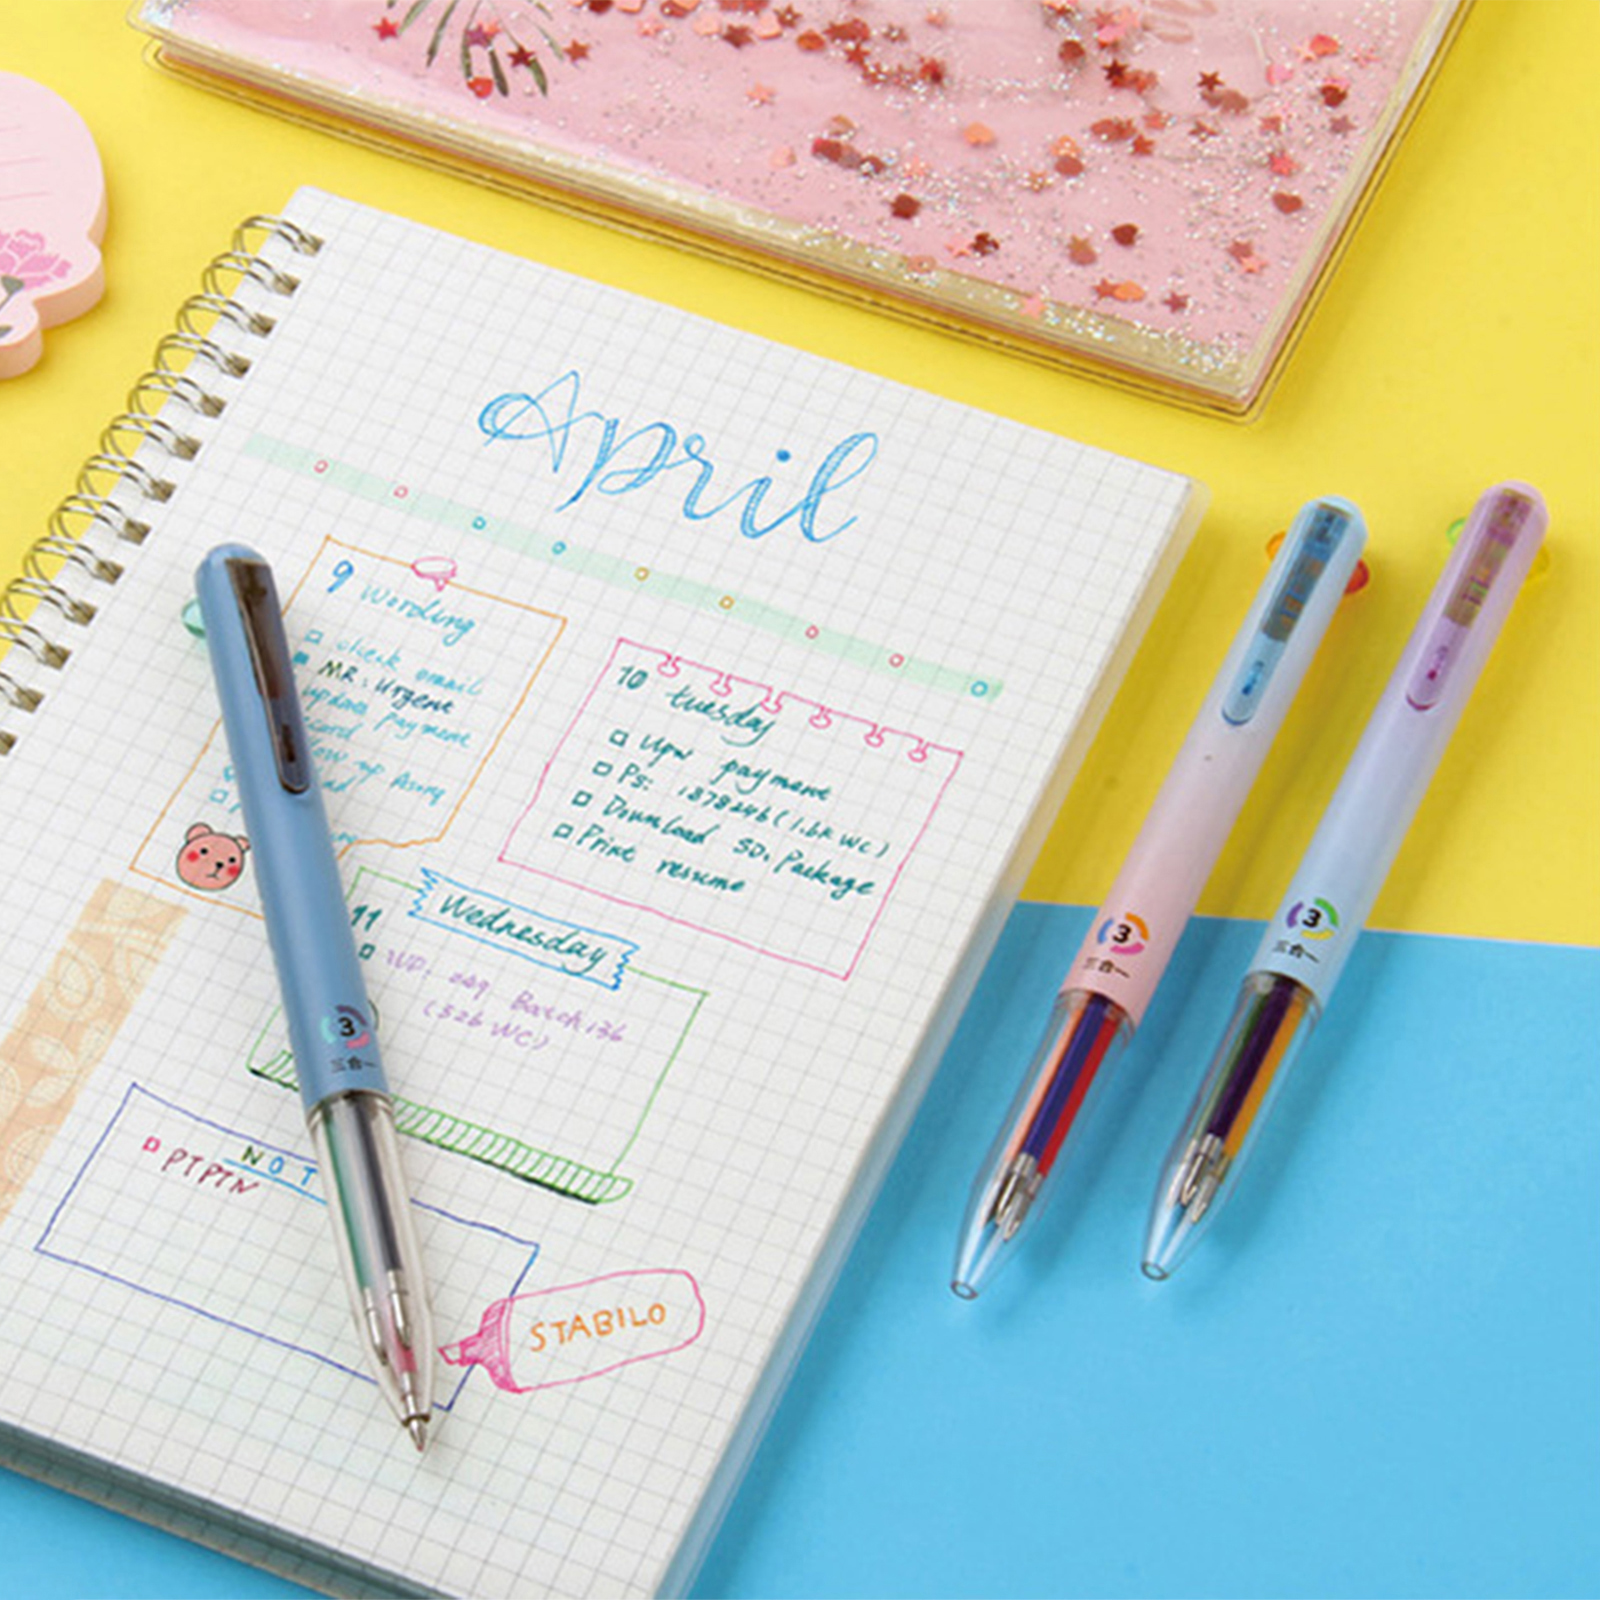 April
9 Wording
check email
MR. Urgent
update payment
10 tuesday
Upw payment
Ps: 137824b (1.6k WC)
Download SD. Package
Print resume
11 Wednesday
WP. 249 Batch 136
(326 WC)
NOT
PTPTN
STABILO
3
三合一
3
三合一
3
三合一